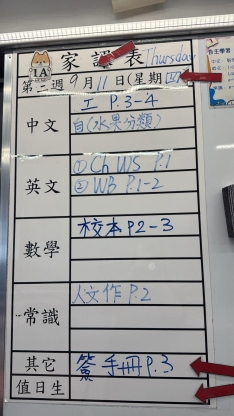 1A
家課表 Thursday
第二週 9月11日(星期四)
中文
工 P.3-4
自(水果分類)
英文
① Ch WS P.1
② WB P.1-2
數學
校本 P2-3
常識
人文作 P.2
其它
簽 手冊 P.3
值日生